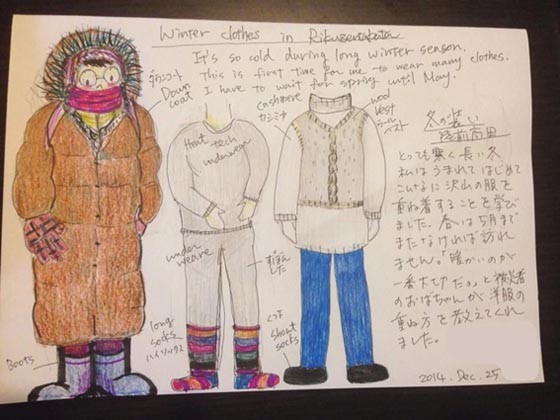 Winter clothes in Rikuzentakata
It's so cold during long winter season.
This is first time for me to wear many clothes.
I have to wait for spring until May.
ダウンコート
Down
coat
cashmere
カシミヤ
wool
vest
ウール
ベスト
Heat tech
underwear
under
weare
ずぼん
した
long
socks
ハイソックス
くつ下
Short
socks
Boots
冬の装い
陸前高田
とっても寒く長い冬
私はうまれてはじめて
こんなに沢山の服を
重ね着することを学び
ました。春は5月まで
またなければ訪れ
ません。「暖かいのが
一番大切だ。」と被災者
のおばちゃんが洋服の
重ね方を教えてくれ
ました。
2014. Dec. 25